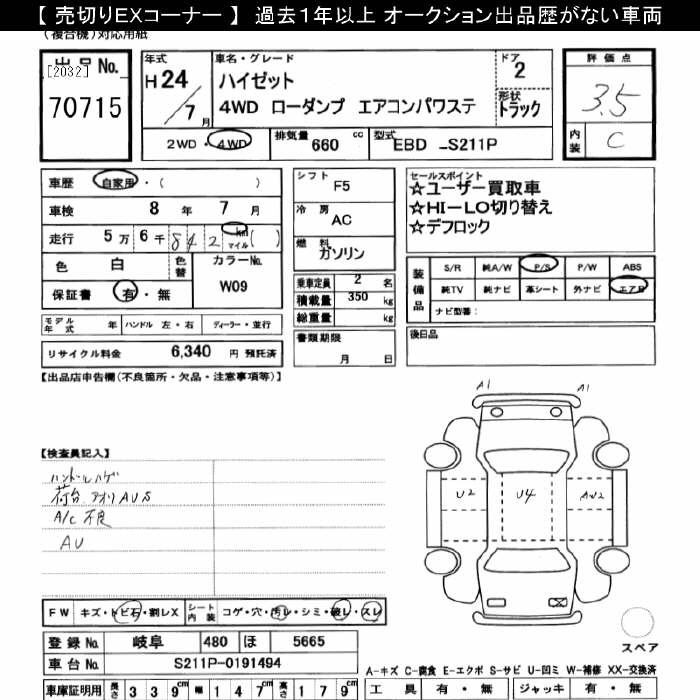 【 売切りEXコーナー 】 過去１年以上 オークション出品歴がない車両
(複合機)対応用紙
出品No.
[2032]
70715
年式
H 24 / 7 月
車名・グレード
ハイゼット
4WD ローダンプ エアコンパワステ
ドア
2
形状
トラック
2WD ・ 4WD
排気量 660 cc
型式 EBD -S211P
評価点
3.5
内装 C
車歴 自家用 ・( )
車検 8 年 7 月
走行 5 万 6 千 8 4 2 km マイル ( )
色 白 色替
カラーNo.
W09
保証書 有 ・ 無
シフト F5
冷房 AC
燃料 ガソリン
乗車定員 2 名
積載量 350 kg
総重量 kg
書類期限
月 日
セールスポイント
☆ユーザー買取車
☆HI－LO切り替え
☆デフロック
装備品
S/R 純A/W P/S P/W ABS
純TV 純ナビ 革シート 外ナビ エアB
ナビ型番：
後日品
モデル年式 年 ハンドル 左・右 ディーラー・並行
リサイクル料金 6,340 円 預託済
【出品店申告欄(不良箇所・欠品・注意事項等)】
【検査員記入】
ハンドルハゲ
荷台 アオリ AUS
A/C 不良
AU
A1 A1
U2 U4 AU2
スペア
FW キズ・トビ石・割レX シート内装 コゲ・穴・汚レ・シミ・破レ・スレ
登録No. 岐阜 480 ほ 5665
車台No. S211P-0191494
車庫証明用 長さ 3 3 9 cm 幅 1 4 7 cm 高さ 1 7 9 cm
A-キズ C-腐食 E-エクボ S-サビ U-凹ミ W-補修 XX-交換済
工具 有・無 ジャッキ 有・無